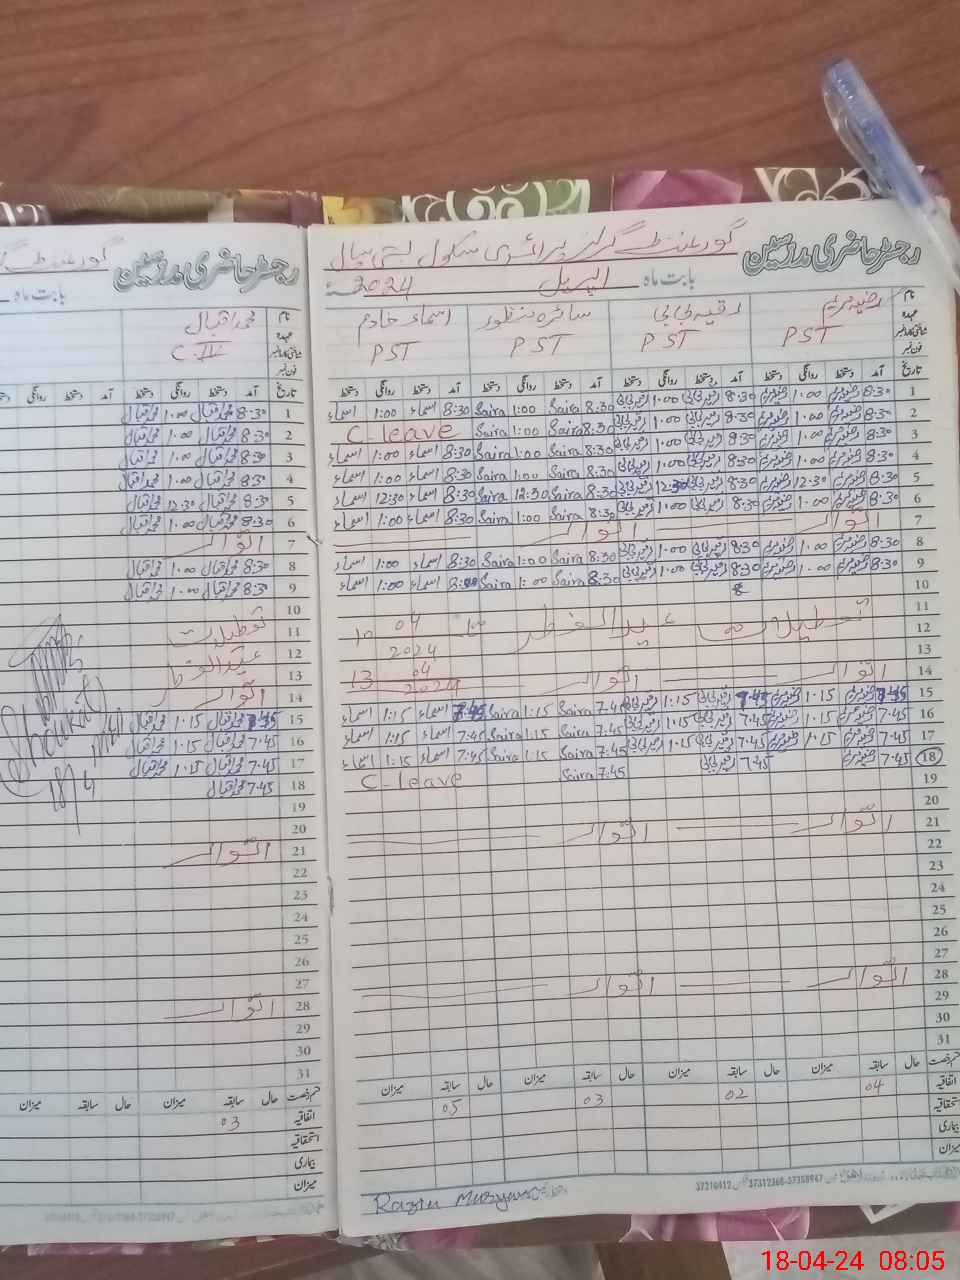 رجسٹر حاضری مدرسین گورنمنٹ گرلز پرائمری سکول بستی سیال
بابت ماہ اپریل 2024
نام رضیہ مریم رقیہ بی بی سائرہ منظور اسماء خادم
عہدہ PST PST PST PST
تاریخ آمد دستخط روانگی دستخط آمد دستخط روانگی دستخط آمد دستخط روانگی دستخط آمد دستخط روانگی دستخط
1 8:30 رضیہ مریم 1:00 رضیہ مریم 8:30 رقیہ بی بی 1:00 رقیہ بی بی 8:30 Saira 1:00 Saira 8:30 اسماء 1:00 اسماء
2 8:30 رضیہ مریم 1:00 رضیہ مریم 8:30 رقیہ بی بی 1:00 رقیہ بی بی 8:30 Saira 1:00 Saira C-leave
3 8:30 رضیہ مریم 1:00 رضیہ مریم 8:30 رقیہ بی بی 1:00 رقیہ بی بی 8:30 Saira 1:00 Saira 8:30 اسماء 1:00 اسماء
4 8:30 رضیہ مریم 1:00 رضیہ مریم 8:30 رقیہ بی بی 1:00 رقیہ بی بی 8:30 Saira 1:00 Saira 8:30 اسماء 1:00 اسماء
5 8:30 رضیہ مریم 12:30 رضیہ مریم 8:30 رقیہ بی بی 12:30 رقیہ بی بی 8:30 Saira 12:30 Saira 8:30 اسماء 12:30 اسماء
6 8:30 رضیہ مریم 1:00 رضیہ مریم 8:30 رقیہ بی بی 1:00 رقیہ بی بی 8:30 Saira 1:00 Saira 8:30 اسماء 1:00 اسماء
7 اتوار اتوار
8 8:30 رضیہ مریم 1:00 رضیہ مریم 8:30 رقیہ بی بی 1:00 رقیہ بی بی 8:30 Saira 1:00 Saira 8:30 اسماء 1:00 اسماء
9 8:30 رضیہ مریم 1:00 رضیہ مریم 8:30 رقیہ بی بی 1:00 رقیہ بی بی 8:30 Saira 1:00 Saira اسماء 1:00 اسماء
10
11
12 تعطیلات عید الفطر 10 04 2024
13
14 اتوار اتوار 13 04 2024
15 7:45 رضیہ مریم 1:15 رضیہ مریم 7:45 رقیہ بی بی 1:15 رقیہ بی بی 7:45 Saira 1:15 Saira 7:45 اسماء 1:15 اسماء
16 7:45 رضیہ مریم 1:15 رضیہ مریم 7:45 رقیہ بی بی 1:15 رقیہ بی بی 7:45 Saira 1:15 Saira 7:45 اسماء 1:15 اسماء
17 7:45 رضیہ مریم 1:15 رضیہ مریم 7:45 رقیہ بی بی 1:15 رقیہ بی بی 7:45 Saira 1:15 Saira 7:45 اسماء 1:15 اسماء
18 7:45 رضیہ مریم 7:45 رقیہ بی بی 7:45 Saira C-leave
19
20
21 اتوار اتوار
22
23
24
25
26
27
28 اتوار اتوار
29
30
31
قسم رخصت حال سابقہ میزان حال سابقہ میزان حال سابقہ میزان حال سابقہ میزان
اتفاقیہ 04 02 03 05
استحقاقیہ
بیماری
میزان
37310412 37312366-37358947
رجسٹر حاضری مدرسین
بابت ماہ
نام محمد اقبال
عہدہ C-IV
تاریخ آمد دستخط روانگی دستخط آمد دستخط روانگی
1 8:30 محمد اقبال 1:00 محمد اقبال
2 8:30 محمد اقبال 1:00 محمد اقبال
3 8:30 محمد اقبال 1:00 محمد اقبال
4 8:30 محمد اقبال 1:00 محمد اقبال
5 8:30 محمد اقبال 12:30 محمد اقبال
6 8:30 محمد اقبال 1:00 محمد اقبال
7 اتوار
8 8:30 محمد اقبال 1:00 محمد اقبال
9 8:30 محمد اقبال 1:00 محمد اقبال
10
11 تعطیلات
12 عید الفطر
13
14 اتوار
15 7:45 محمد اقبال 1:15 محمد اقبال
16 7:45 محمد اقبال 1:15 محمد اقبال
17 7:45 محمد اقبال 1:15 محمد اقبال
18 7:45 محمد اقبال
19
20
21 اتوار
22
23
24
25
26
27
28 اتوار
29
30
31
قسم رخصت حال سابقہ میزان حال سابقہ میزان
اتفاقیہ 03
استحقاقیہ
بیماری
میزان
18-04-24 08:05